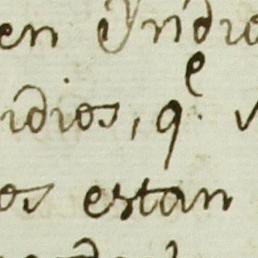 en Yndio
idios, q.e
os estan